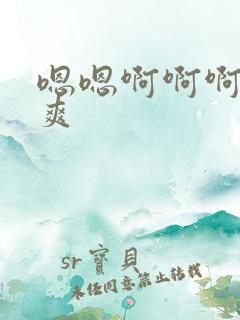 嗯嗯啊啊啊
爽
sr寶貝
未任同意禁止转载